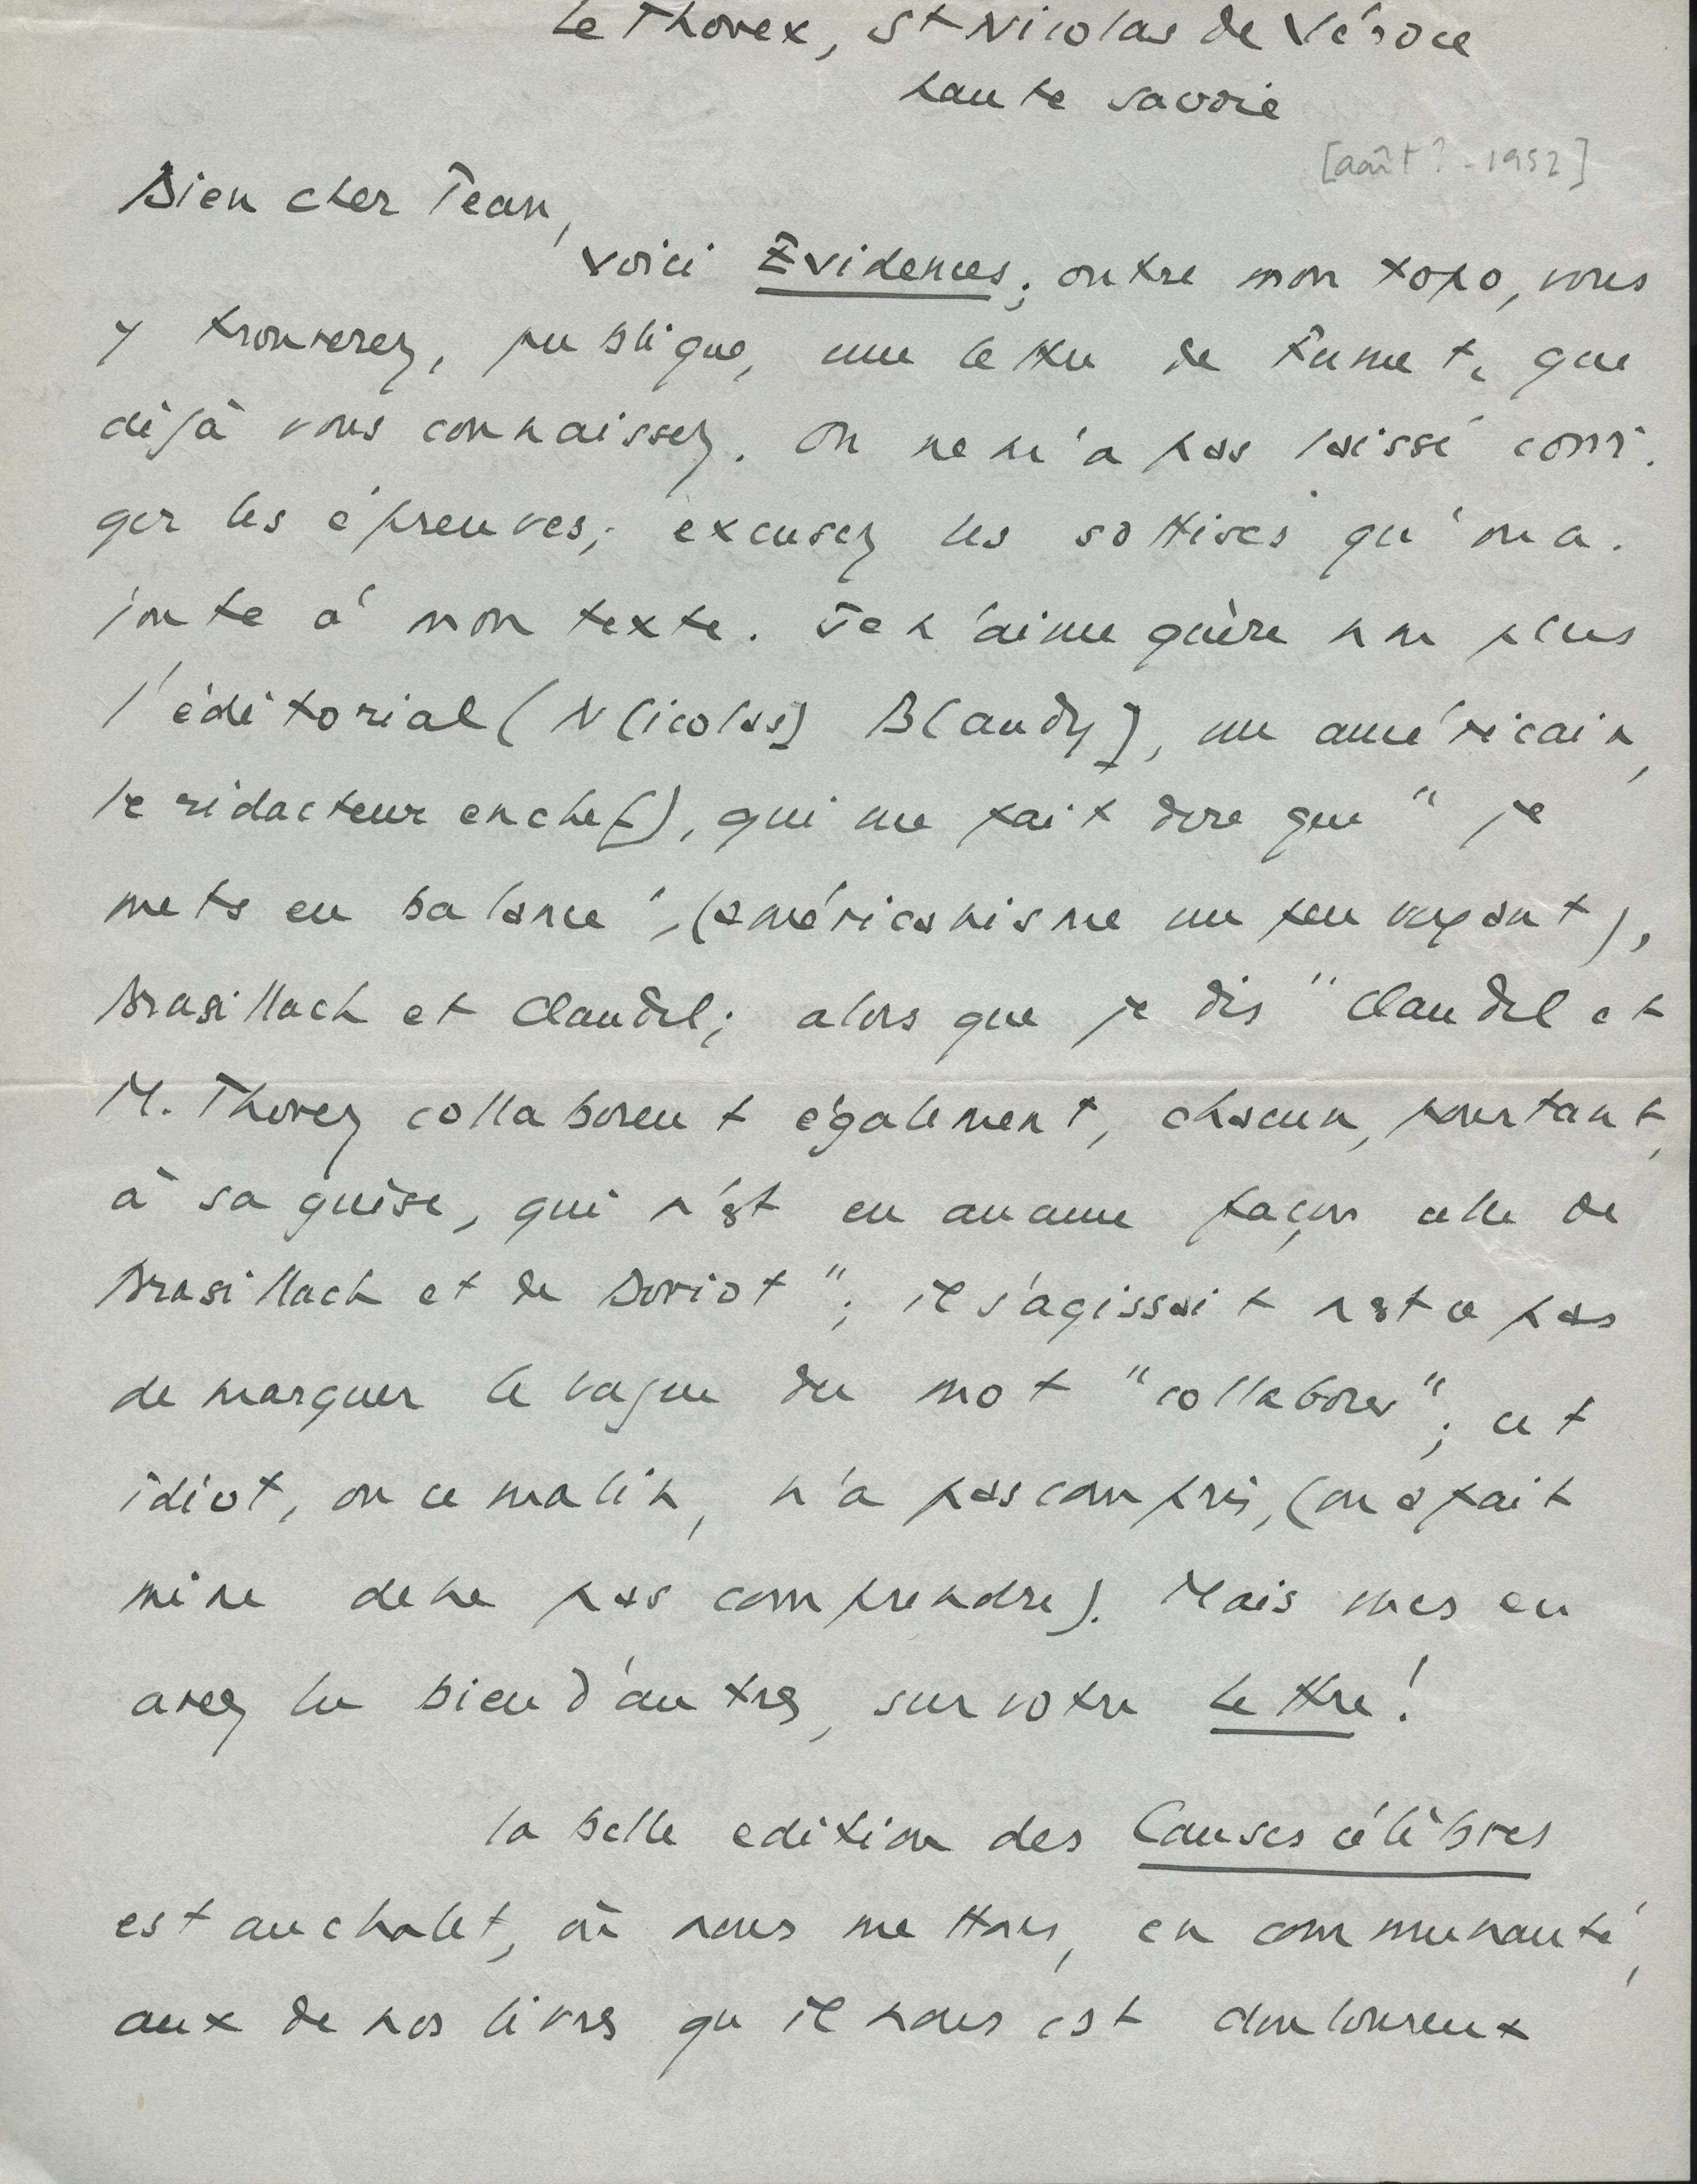 Le Thorex, St Nicolas de Véroce
haute savoie
[août ? - 1952]
Bien cher Jean,
voici Evidences; outre mon topo, vous
y trouverez, publique, une lettre de Fumet, que
déjà vous connaissez. On ne m'a pas laissé corri-
ger les épreuves; excusez les sottises qu'on a
joute à mon texte. Je n'aime guère non plus
l'éditorial (N[icolas] B[audy], un américain,
le rédacteur en chef), qui me fait dire que "je
mets en balance", (américanisme un peu voyant),
Brasillach et Claudel; alors que je dis "Claudel et
M. Thorez collaborent également, chacun, pourtant,
à sa guise, qui n'est en aucune façon celle de
Brasillach et de Doriot"; il s'agissait n'est ce pas
de marquer le vague du mot "collaborer"; cet
idiot, ou ce malin, n'a pas compris, (ou a fait
mine de ne pas comprendre). Mais vous en
avez lu bien d'autres, sur votre Lettre!
la belle edition des Causes célèbres
est au chalet, où nous mettons, en communauté,
ceux de nos livres qu'il nous est douloureux